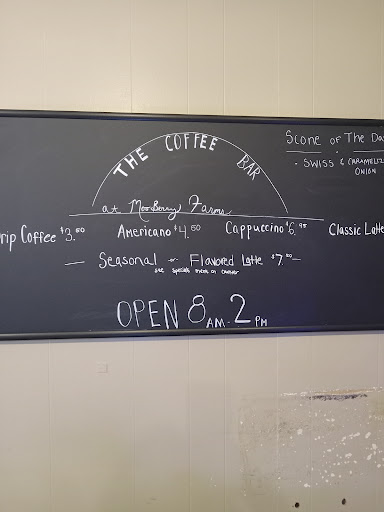 THE COFFEE BAR
at MooBerry Farms
rip Coffee $3.50 Americano $4.50 Cappuccino $6.95 Classic Latte
— Seasonal or Flavored Latte $7.00 —
see specials menu on counter
OPEN 8 AM - 2 PM
Scone of The Da
- SWISS & CARAMELIZ
ONION